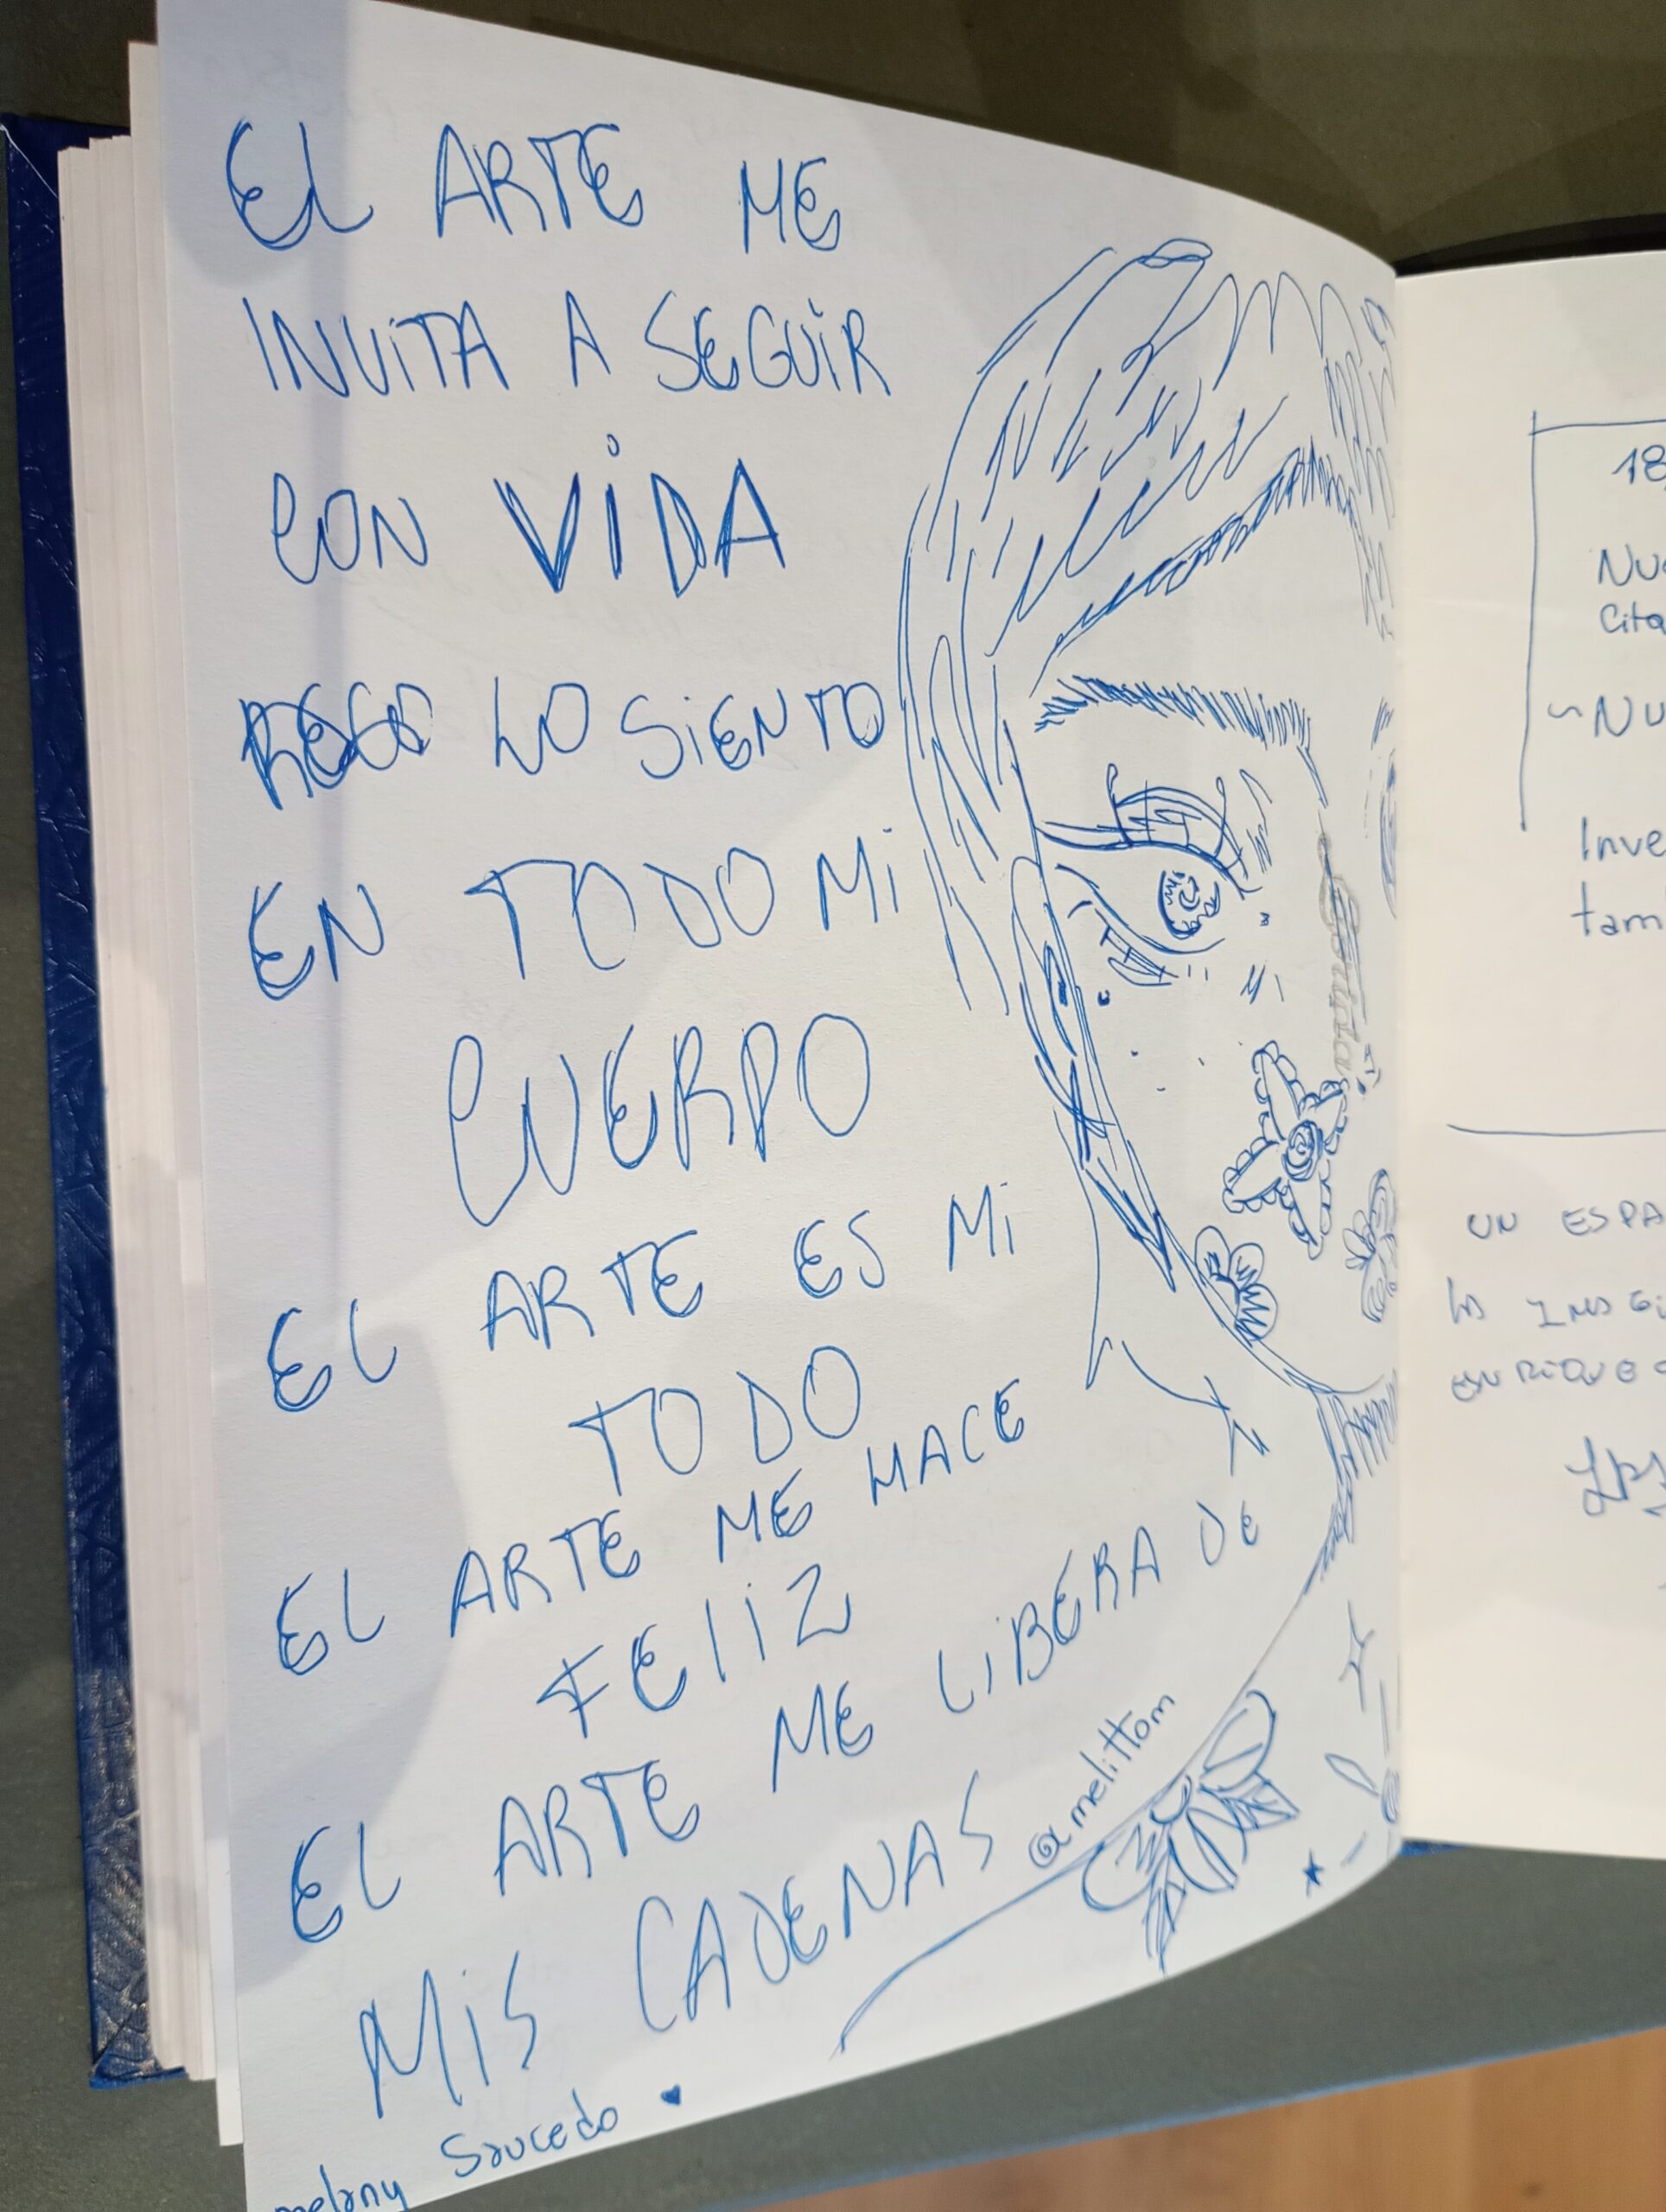 El ARTE ME
INVITA A SEGUiR
CON ViDA
LO SiENTO
EN TODO Mi
CUERPO
EL ARTE ES Mi
TODO
EL ARTE ME HACE
FEliZ
EL ARTE ME LiBERA DE
MiS CADENAS
@melittom
melany Saucedo
18
Nu
Cita
~Nu
Inve
tam
UN ESPA